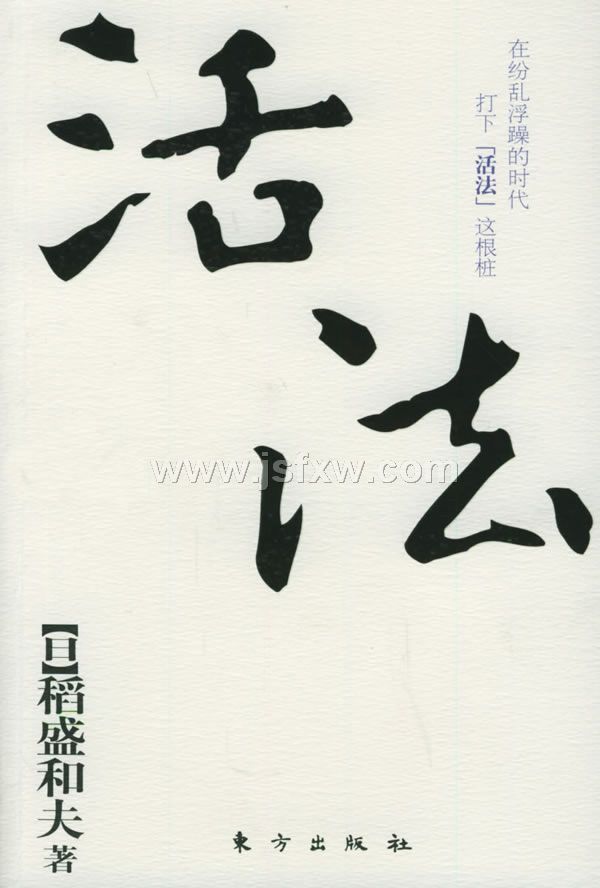 活法
在纷乱浮躁的时代
打下「活法」这根桩
www.jsfxw.com
【日】稻盛和夫 著
東方出版社